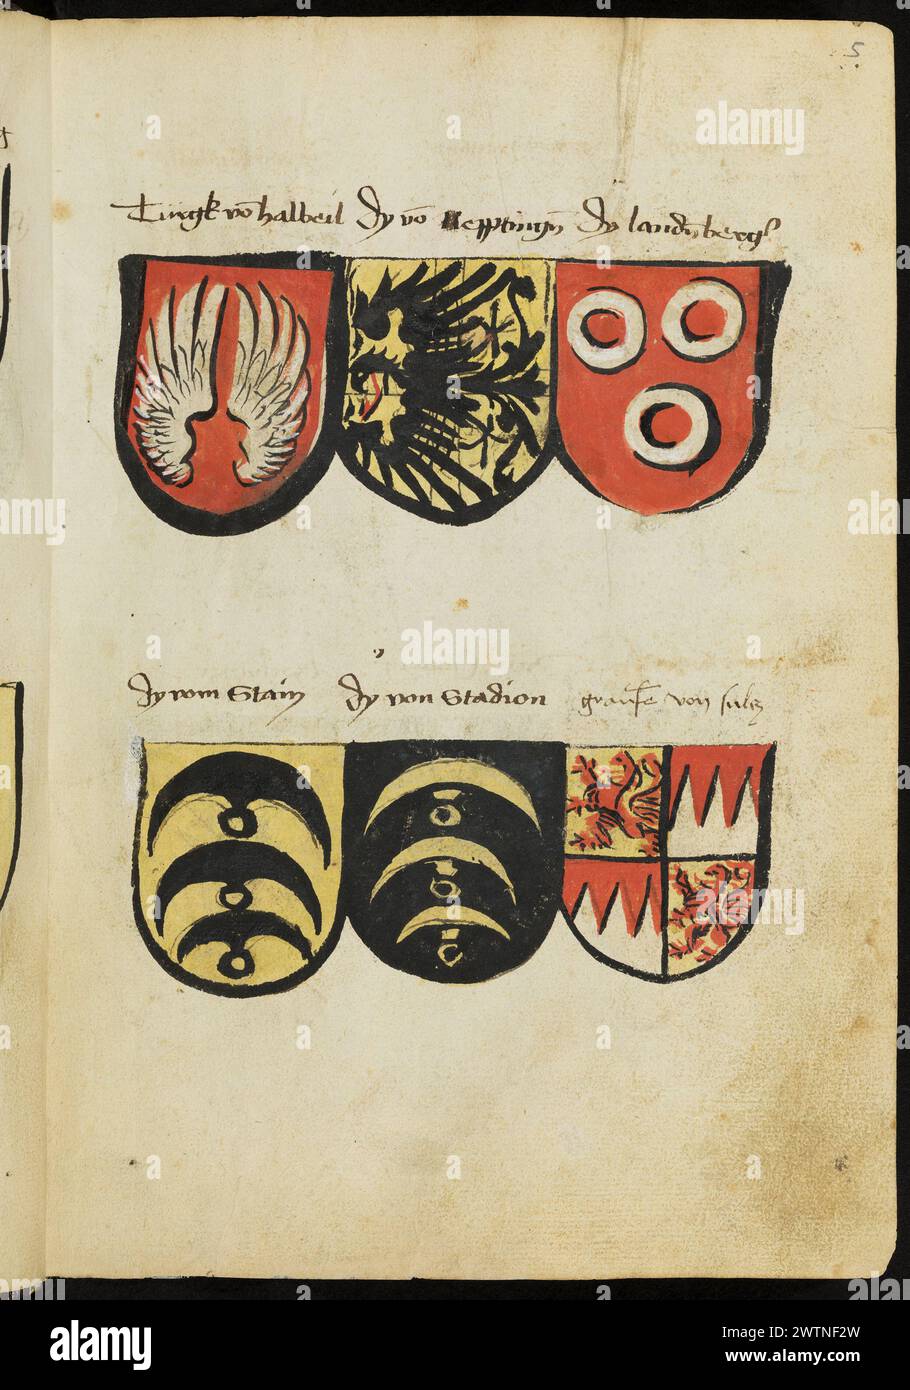 5
Türgk võ halbeil dy võ Nepptingñ dy landnberg
dy vom Stain dy von Stadion grauffe von sulcz
a
alamy
Image ID: 2WTNF2W
www.alamy.com